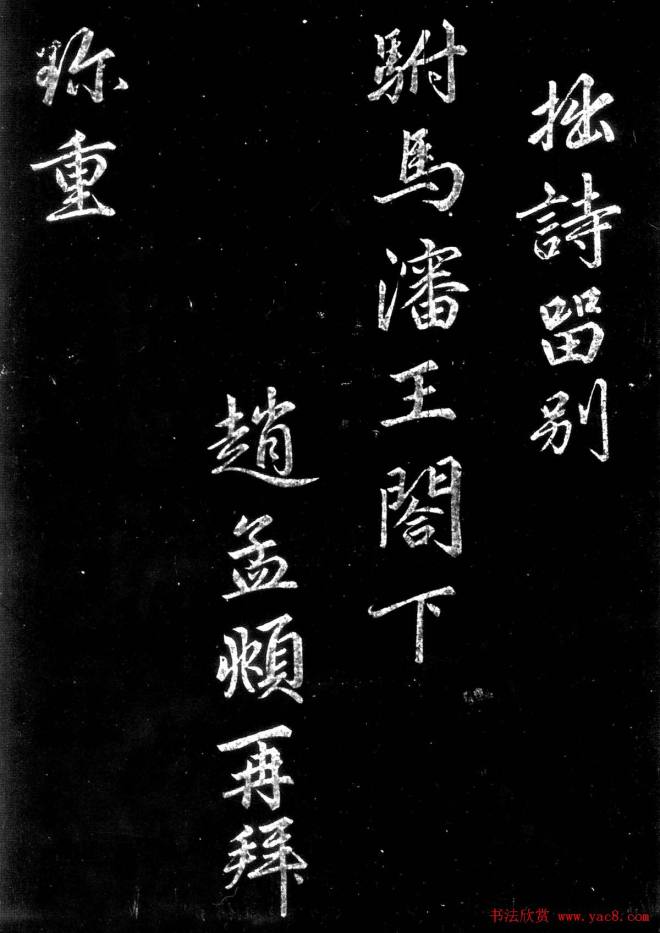 拙詩畱别
駙馬瀋王閤下
趙孟頫再拜
珎重
书法欣赏 www.yac8.com